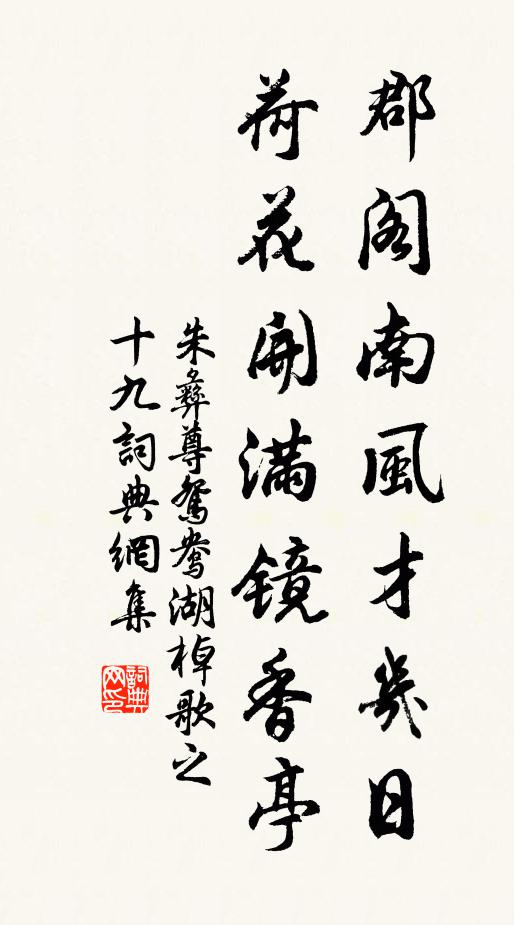 郡阁南風才幾日
荷花開滿镜香亭
朱彝尊鴛鴦湖棹歌之
十九詞典網集
詞典
网印